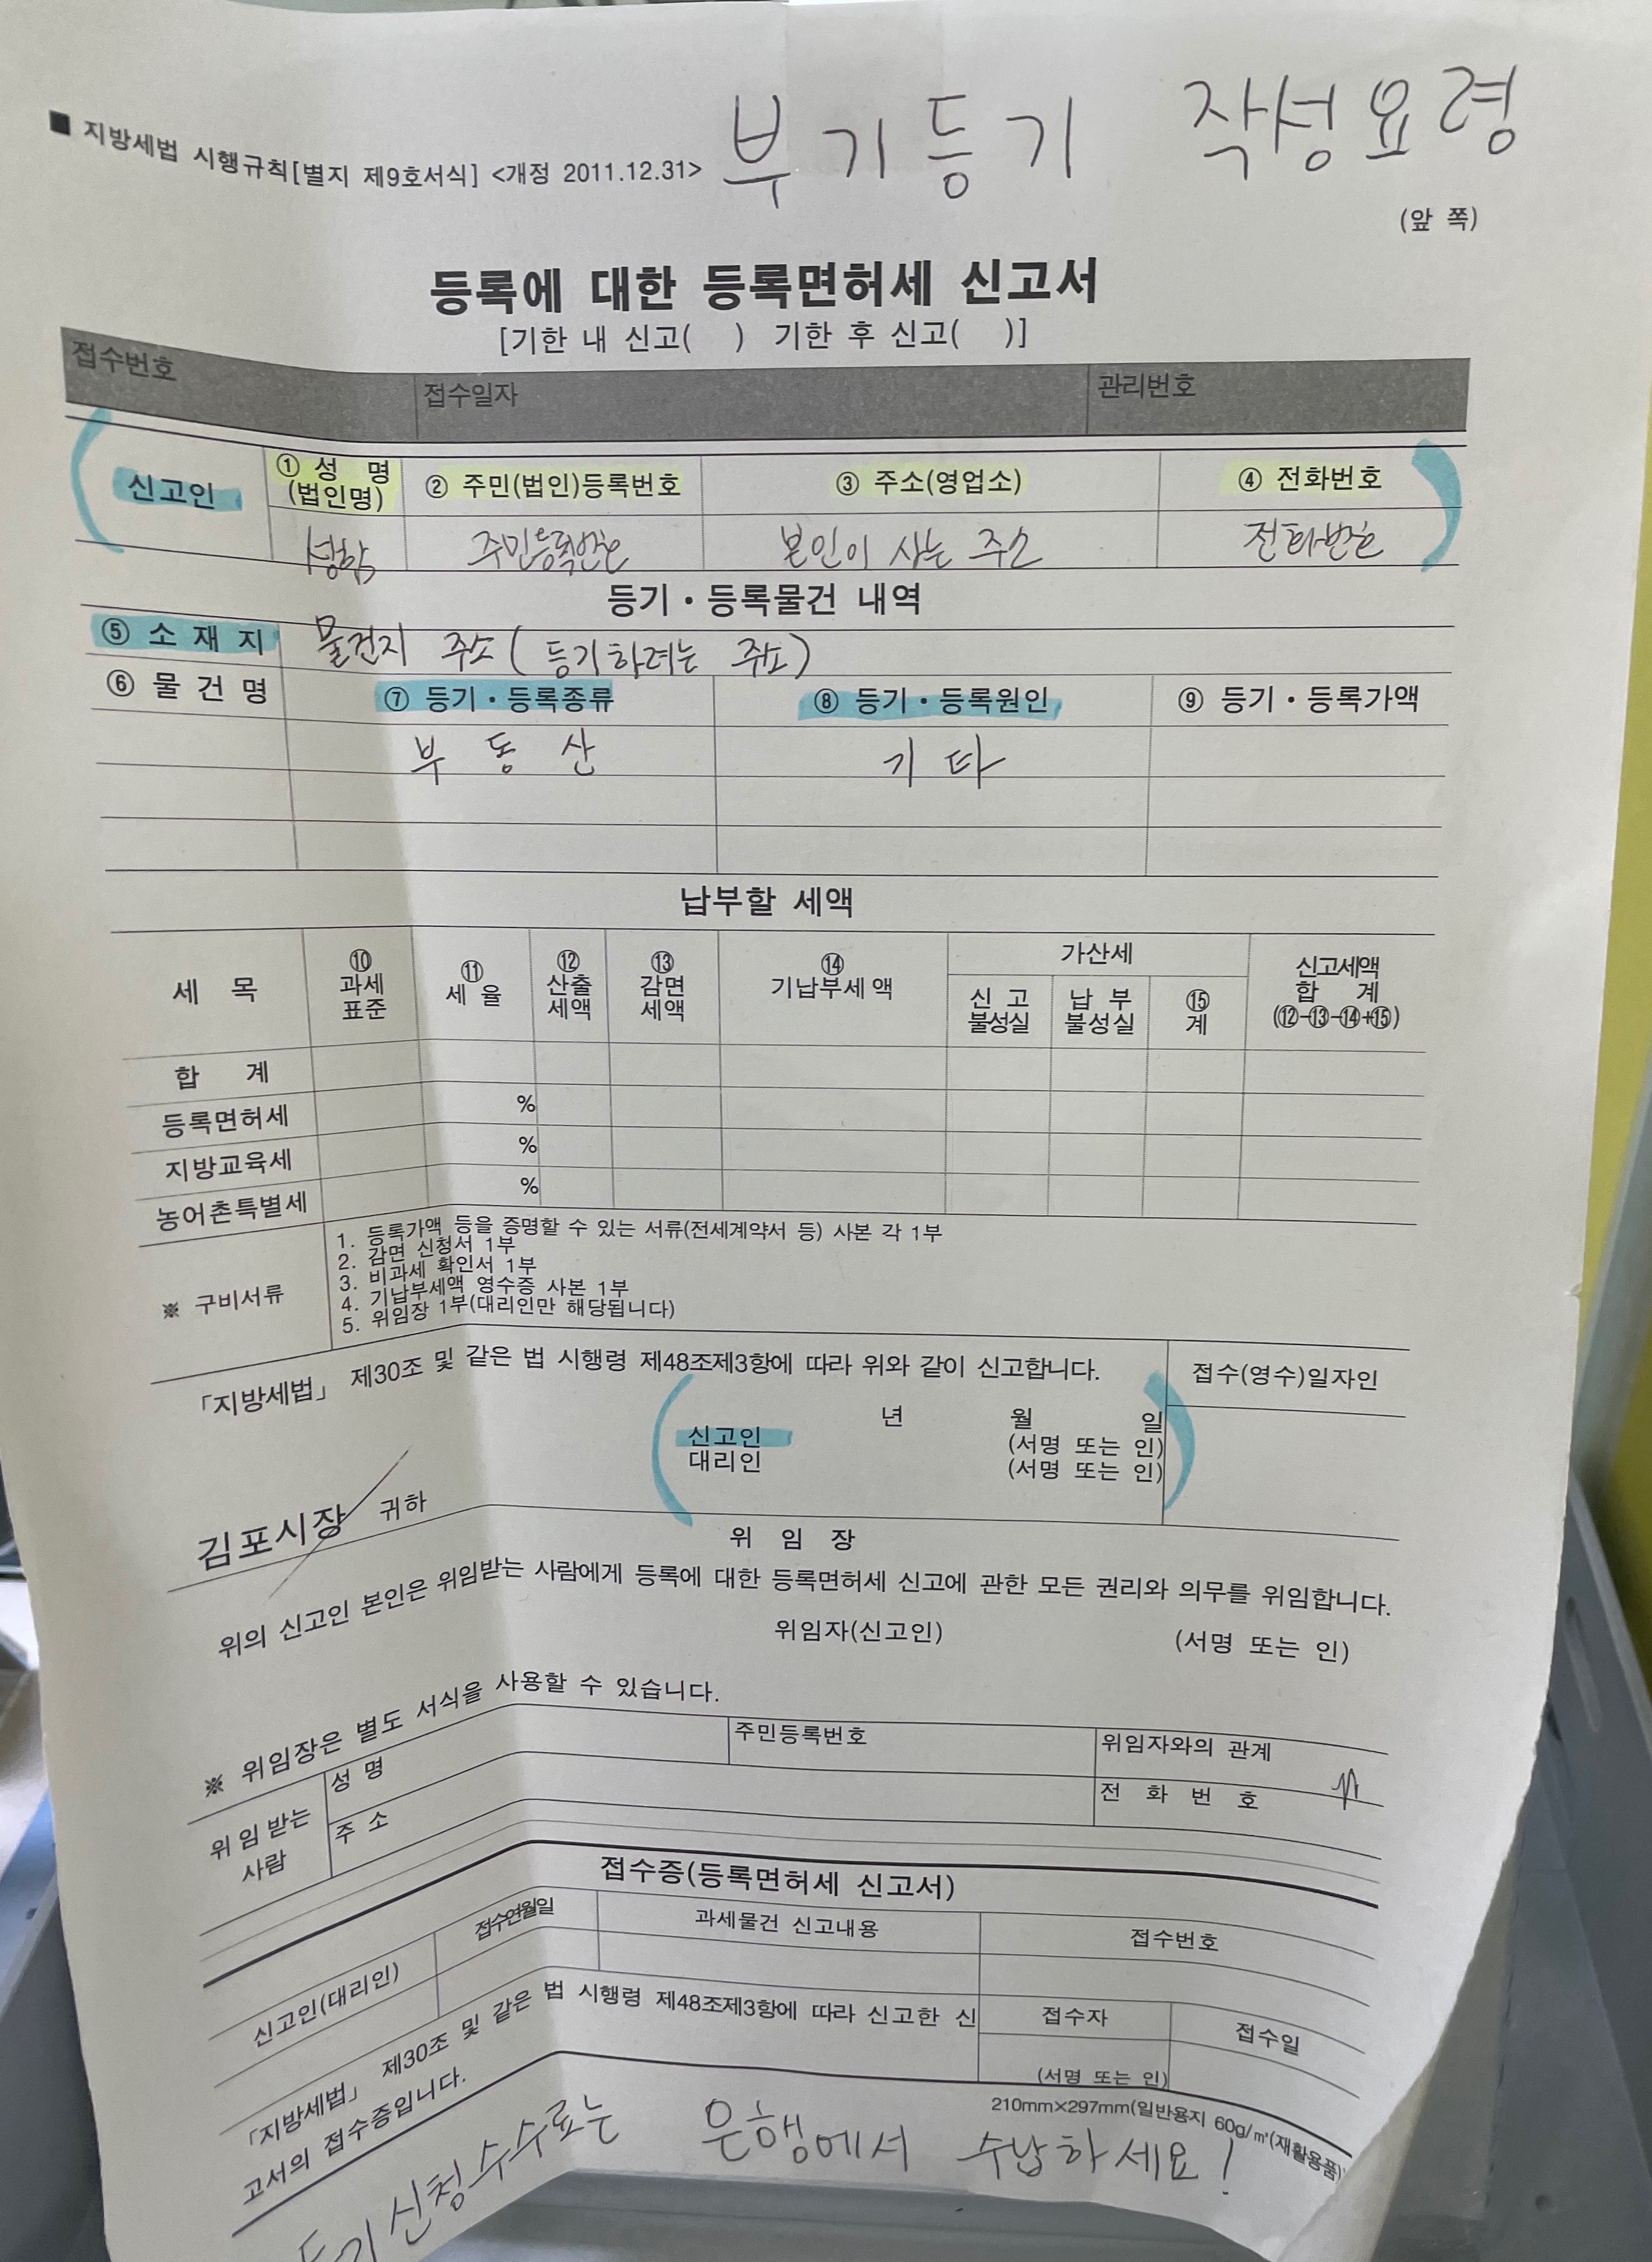 부기등기 작성요령
■ 지방세법 시행규칙[별지 제9호서식] <개정 2011.12.31>
(앞 쪽)
등록에 대한 등록면허세 신고서
[기한 내 신고( ) 기한 후 신고( )]
접수번호 접수일자 관리번호
신고인 ① 성 명 (법인명) ② 주민(법인)등록번호 ③ 주소(영업소) ④ 전화번호
성함 주민등록번호 본인이 사는 주소 전화번호
등기·등록물건 내역
⑤ 소 재 지 물건지 주소(등기하려는 주소)
⑥ 물 건 명 ⑦ 등기·등록종류 ⑧ 등기·등록원인 ⑨ 등기·등록가액
부 동 산 기 타
납부할 세액
세 목 ⑩ 과세 표준 ⑪ 세 율 ⑫ 산출 세액 ⑬ 감면 세액 ⑭ 기납부세액 가산세 신고세액 합 계 (⑫-⑬-⑭+⑮)
신 고 불성실 납 부 불성실 ⑮ 계
합 계
등록면허세 %
지방교육세 %
농어촌특별세 %
※ 구비서류
1. 등록가액 등을 증명할 수 있는 서류(전세계약서 등) 사본 각 1부
2. 감면 신청서 1부
3. 비과세 확인서 1부
4. 기납부세액 영수증 사본 1부
5. 위임장 1부(대리인만 해당됩니다)
「지방세법」 제30조 및 같은 법 시행령 제48조제3항에 따라 위와 같이 신고합니다.
접수(영수)일자인
년 월 일
신고인 (서명 또는 인)
대리인 (서명 또는 인)
김포시장 귀하
위 임 장
위의 신고인 본인은 위임받는 사람에게 등록에 대한 등록면허세 신고에 관한 모든 권리와 의무를 위임합니다.
위임자(신고인) (서명 또는 인)
※ 위임장은 별도 서식을 사용할 수 있습니다.
위임받는 사람 성 명 주민등록번호 위임자와의 관계
주 소 전 화 번 호
접수증(등록면허세 신고서)
신고인(대리인) 접수연월일 과세물건 신고내용 접수번호
「지방세법」 제30조 및 같은 법 시행령 제48조제3항에 따라 신고한 신
고서의 접수증입니다.
접수자 접수일
(서명 또는 인)
210mm×297mm(일반용지 60g/㎡(재활용품)
등기신청수수료는 은행에서 수납하세요!